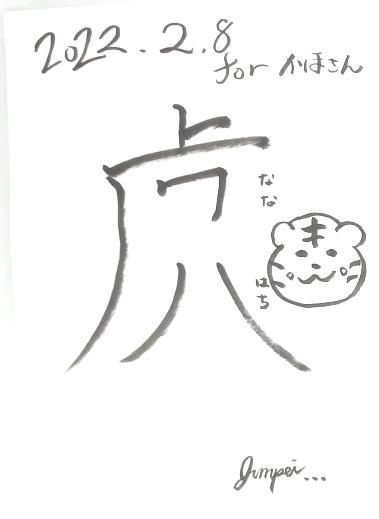 2022.2.8
for かほさん
虎
なな
はち
Jumpei...